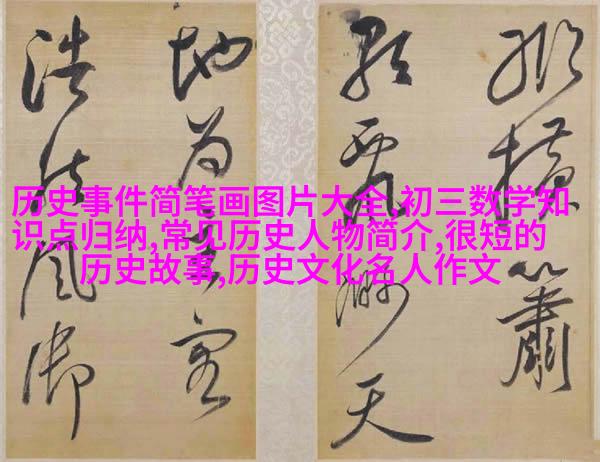 历史事件简笔画图片大全,初三数学知
识点归纳,常见历史人物简介,很短的
历史故事,历史文化名人作文
横簫
天
地為
浩然風御